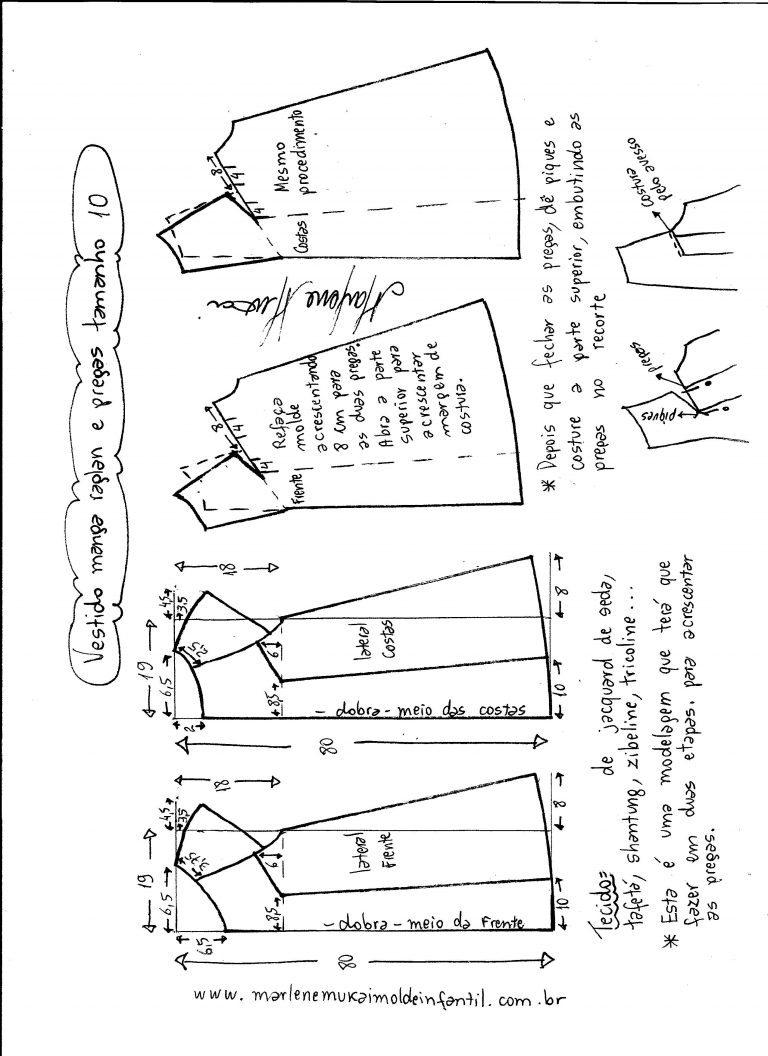 Vestido manga raglan e pregas tamanho 10
19
6,5
4,5
3,5
3,5
18
6,5
6
8,5
lateral
Frente
- dobra - meio da Frente
80
10
8
19
6,5
4,5
3,5
2,5
18
2
6
8,5
lateral
Costas
- dobra - meio das costas
80
10
8
8
4
4
Frente
Refaça
molde
acrescentando
8 cm para
as duas pregas.
Abra a parte
superior para
acrescentar
margem de
costura.
8
4
4
Costas
Mesmo
procedimento
Tecido= de jacquard de seda,
tafetá, shantung, zibeline, tricoline...
* Esta é uma modelagem que terá que
fazer em duas etapas. para acrescentar
as pregas.
* Depois que fechar as pregas, dê piques e
costure a parte superior, embutindo as
pregas no recorte
piques
pregas
costura
pelo avesso
www.marlenemukaimoldeinfantil.com.br